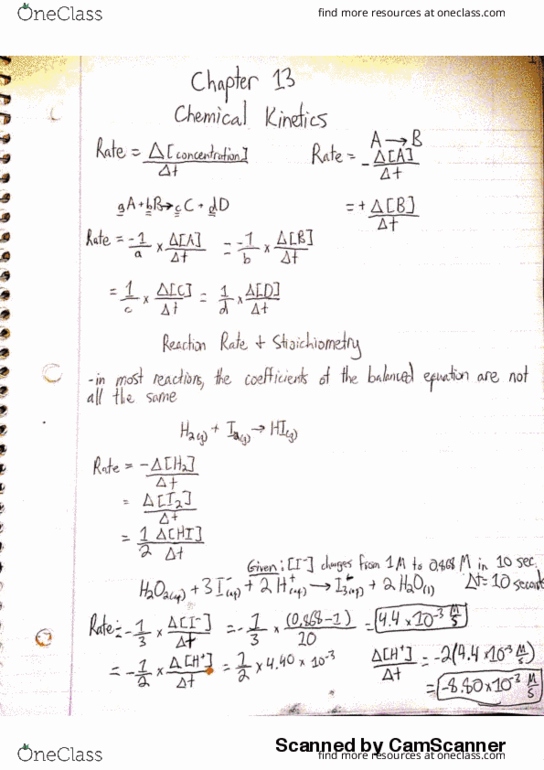 OneClass
find more resources at oneclass.com
Chapter 13
Chemical Kinetics
A → B
Rate = Δ[concentration]/Δt
Rate = -Δ[A]/Δt
aA + bB → cC + dD
= + Δ[B]/Δt
Rate = -1/a × Δ[A]/Δt = -1/b × Δ[B]/Δt
= 1/c × Δ[C]/Δt = 1/d × Δ[D]/Δt
Reaction Rate + Stoichiometry
-in most reactions, the coefficients of the balanced equation are not
all the same
H2(g) + I2(g) → HI(g)
Rate = -Δ[H2]/Δt
= Δ[I2]/Δt
= 1/2 Δ[HI]/Δt
Given: [I-] changes from 1M to 0.868 M in 10 sec.
H2O2(aq) + 3I-(aq) + 2H+(aq) → I3-(aq) + 2 H2O(l) Δt = 10 seconds
Rate = -1/3 × Δ[I-]/Δt = -1/3 × (0.868-1)/10 = 4.4 x 10-3 M/S
= -1/2 × Δ[H+]/Δt = 1/2 × 4.40 x 10-3
Δ[H+]/Δt = -2(4.4 x 10-3 M/S)
= -8.80 x 10-3 M/S
Scanned by CamScanner
OneClass
find more resources at oneclass.com